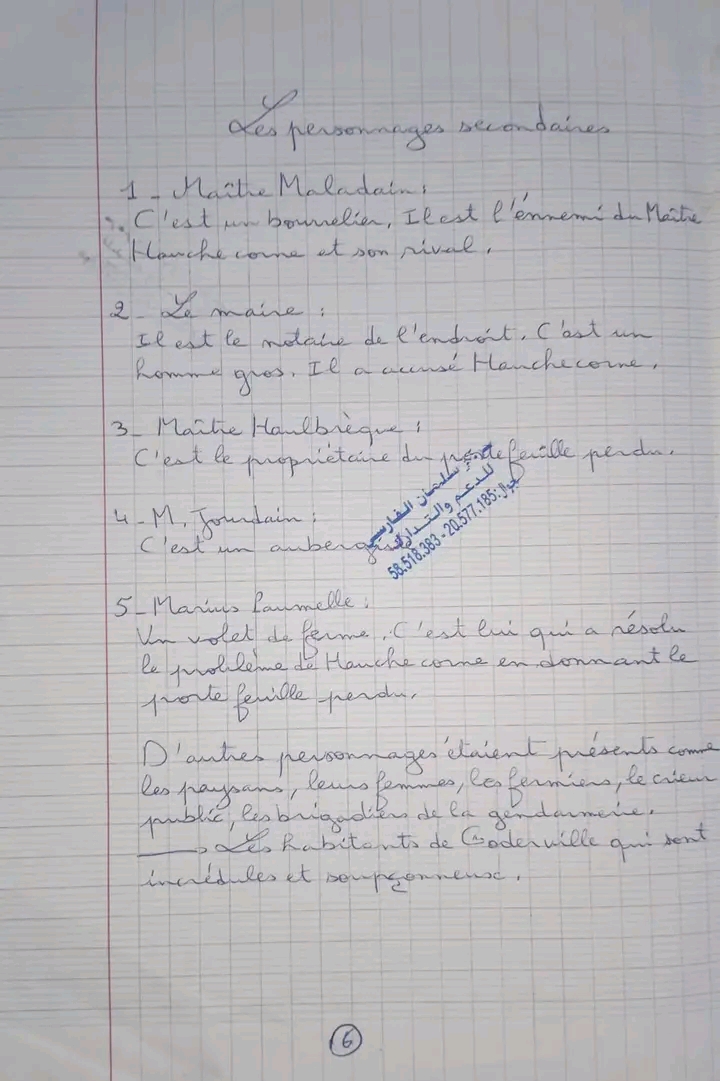 Les personnages secondaires
1 - Maître Maladain :
C'est un bourrelier, Il est l'énnemi du Maître
Hauchecorne et son rival.
2 - Le maire :
Il est le notaire de l'endroit. C'est un
homme gros. Il a accusé Hauchecorne.
3 - Maître Haulbrèque :
C'est le propriétaire du portefeuille perdu.
سلمان الفارسي
للدعم والتدارك
جوال: 20.577.185 - 58.518.383
4 - M. Jourdain :
C'est un aubergiste
5 - Marius Paumelle :
Un volet de ferme. C'est lui qui a résolu
le problème de Hauchecorne en donnant le
porte feuille perdu.
D'autres personnages étaient présents comme
les paysans, leurs femmes, les fermiers, le crieur
public, les brigadiers de la gendarmerie.
→ Les habitants de Goderville qui sont
incrédules et soupçonneux.
6